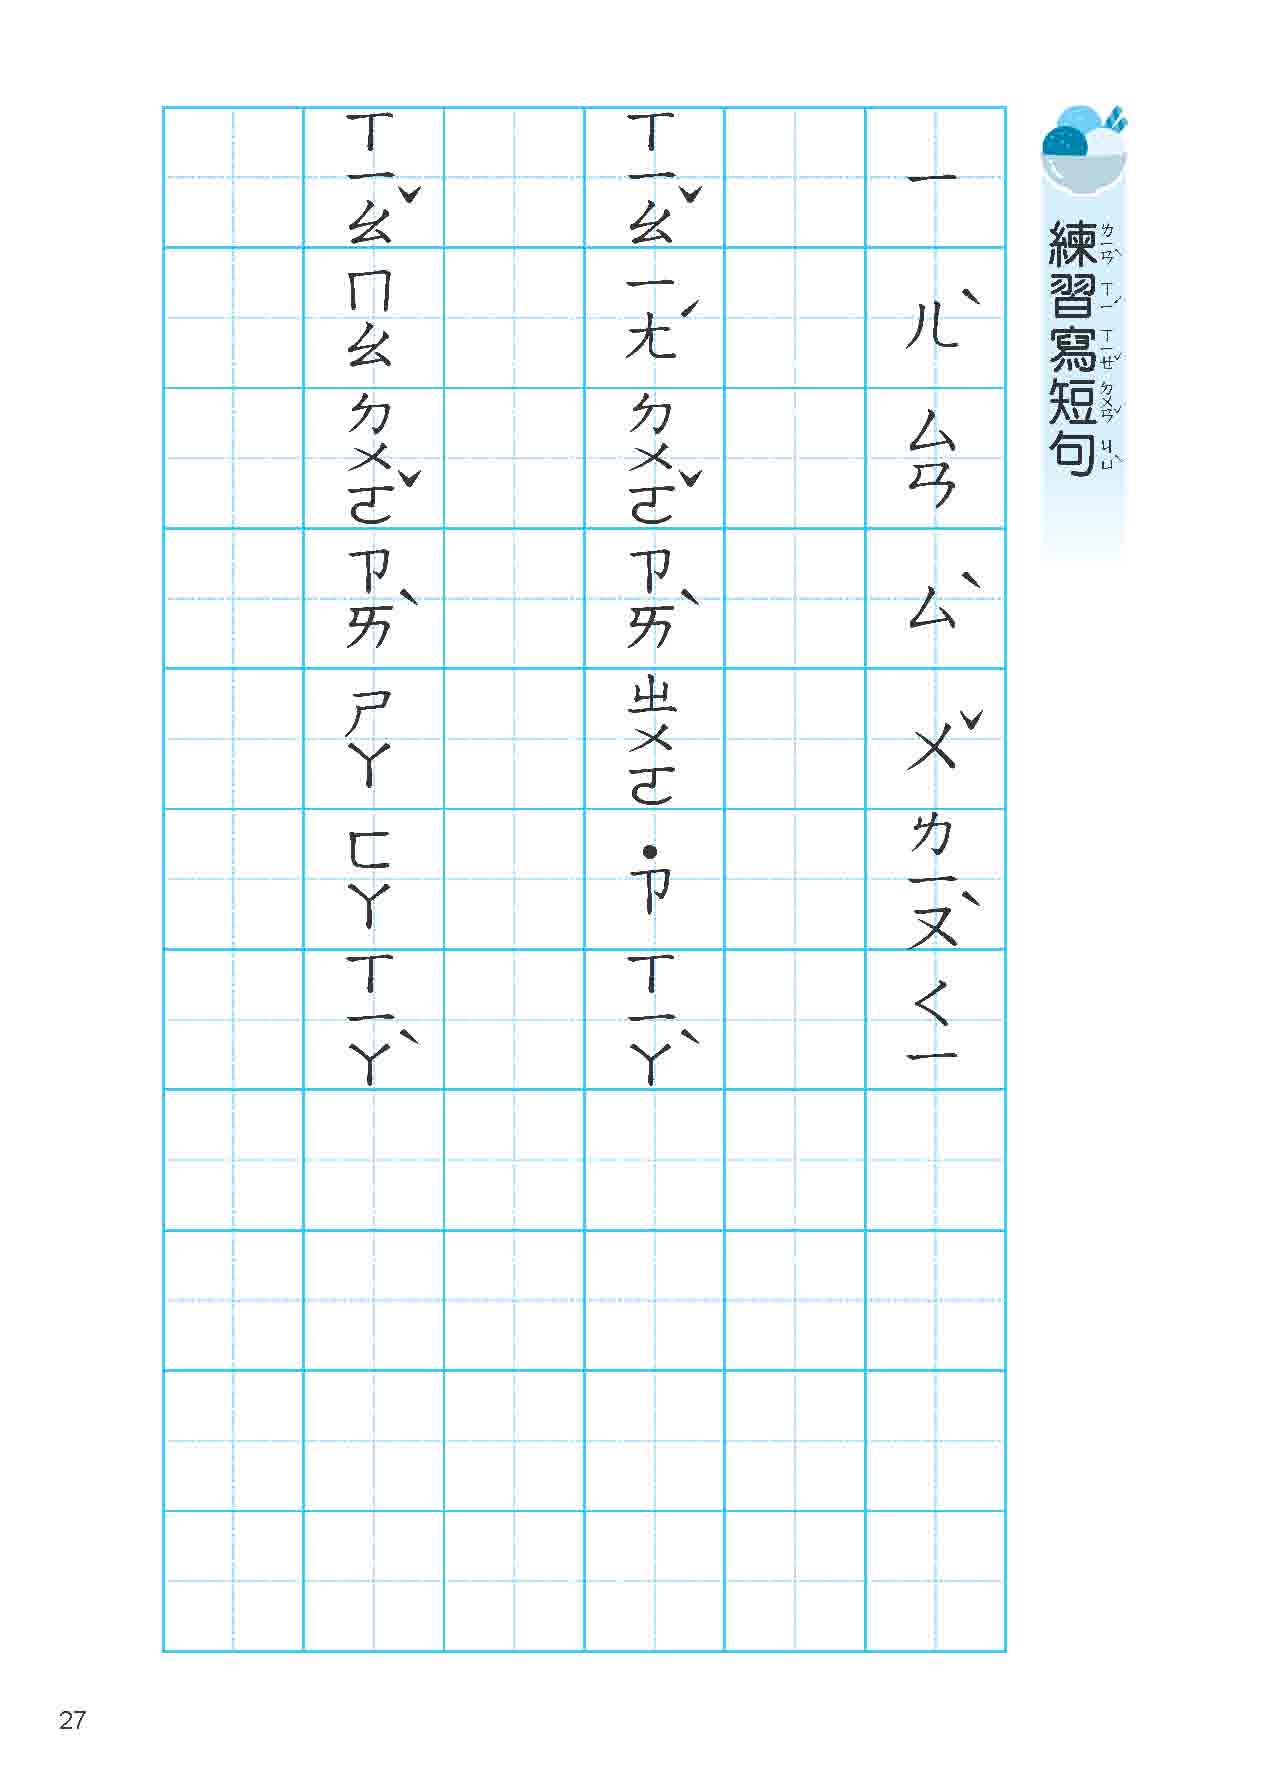 練習寫短句
ㄌㄧㄢˋ ㄒㄧˊ ㄒㄧㄝˇ ㄉㄨㄢˇ ㄐㄩˋ
ㄧ ㄦˋ ㄙㄢ ㄙˋ ㄨˇ ㄌㄧㄡˋ ㄑㄧ
ㄒㄧㄠˇ ㄧㄤˊ ㄉㄨㄛˇ ㄗㄞˋ ㄓㄨㄛ ˙ㄗ ㄒㄧㄚˋ
ㄒㄧㄠˇ ㄇㄠ ㄉㄨㄛˇ ㄗㄞˋ ㄕㄚ ㄈㄚ ㄒㄧㄚˋ
27